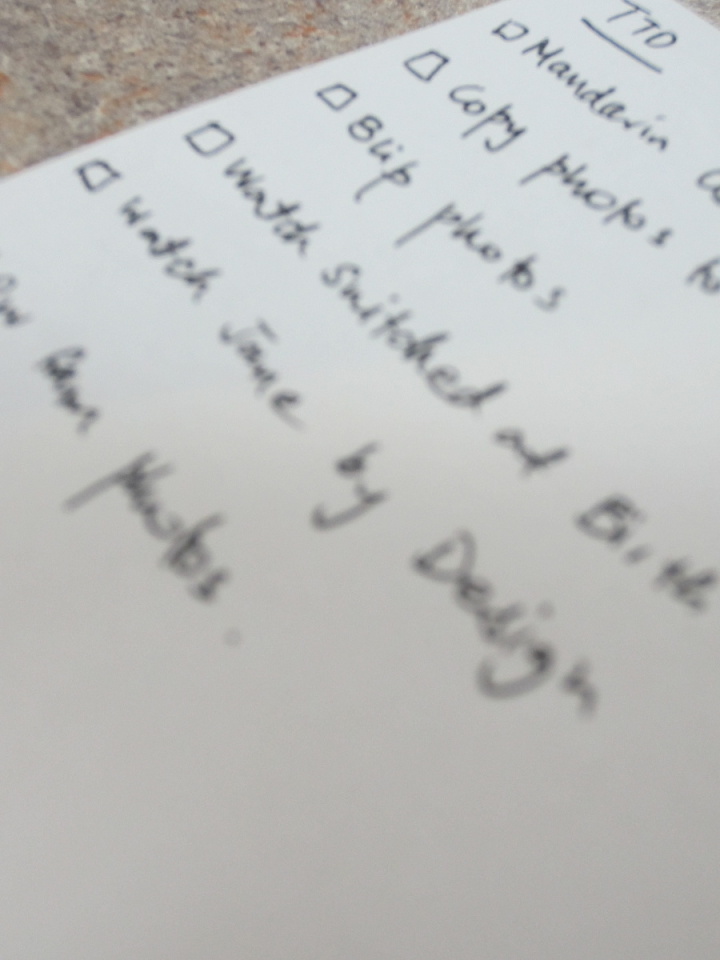 TTD
Mandarin
Copy photos to
Blip photos
Watch Switched at Birth
Watch Jane by Design
photos.